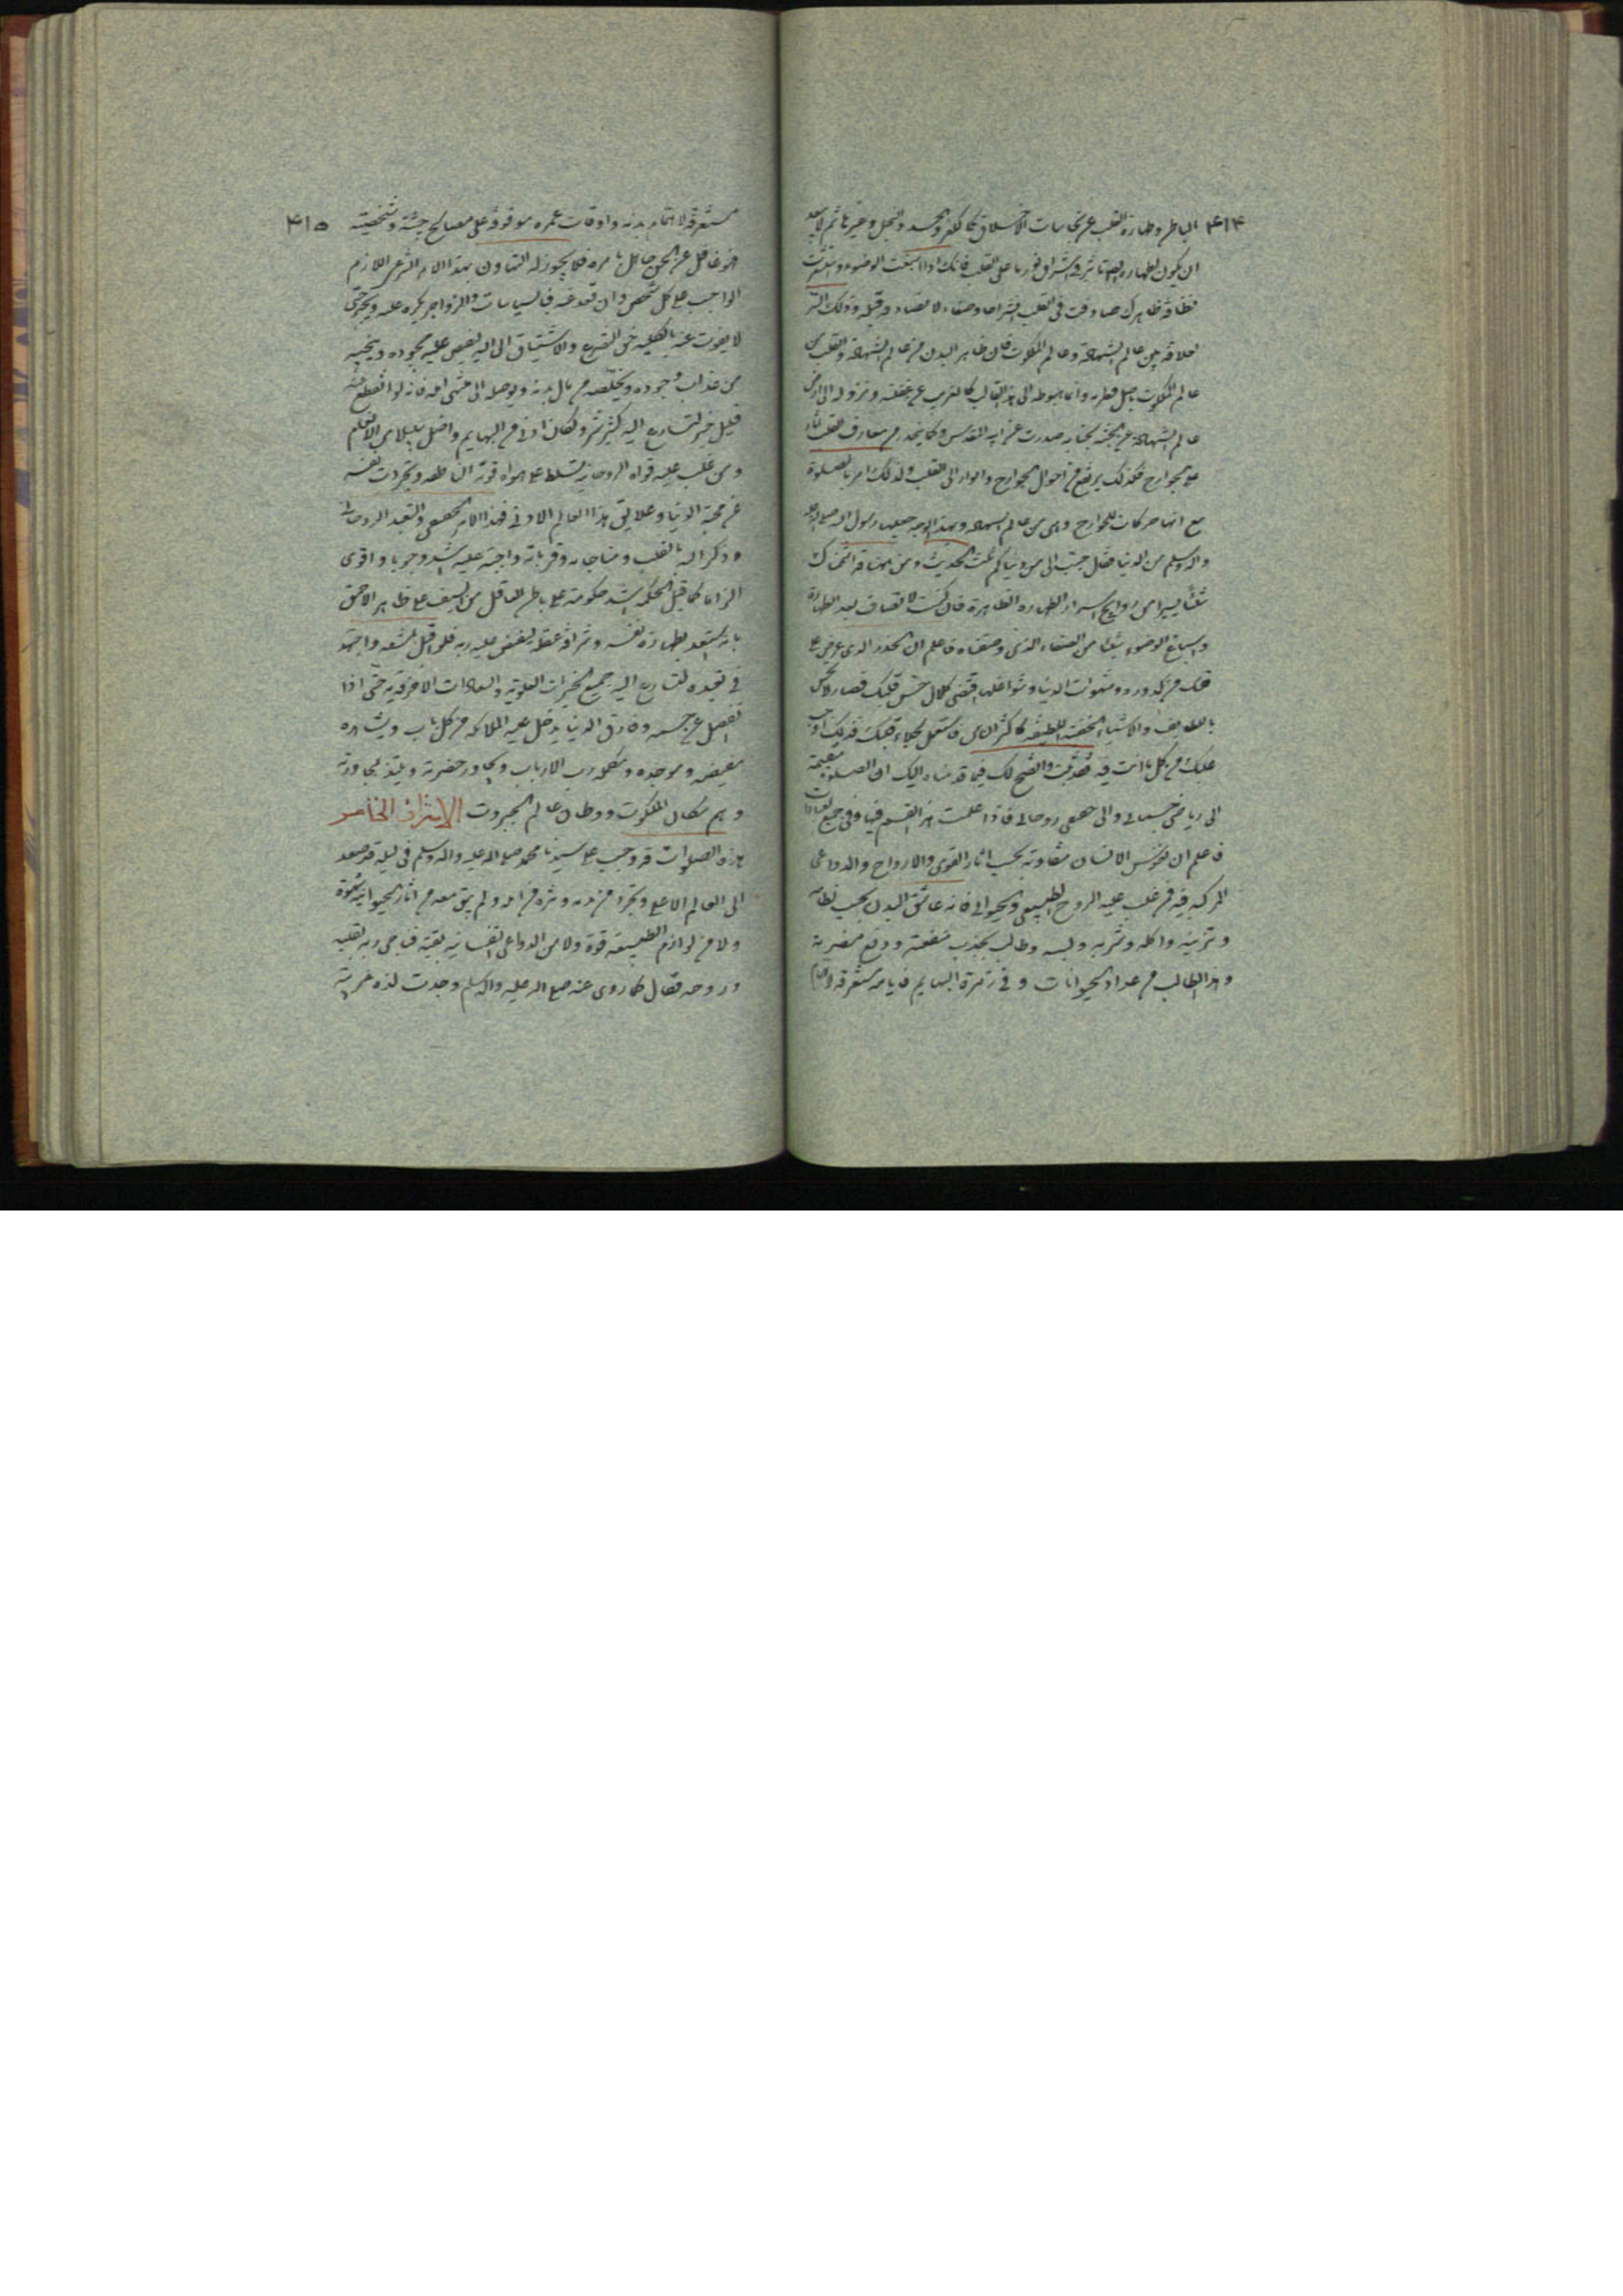 ٤١٤
الباطن وطهارة القلب عن نجاسات الاخلاق كالكفر والحسد والبخل وغيرها ثم لا يبعد
ان يكون لطهارة تاثير في اشراق نورها على القلب فانك اذا اسبغت الوضوء و
نظافة ظاهرك صادفت في القلب انشراحا وصفاء لا تصادفه قبله وذلك لسر
العلاقة بين عالم الشهادة وعالم الملكوت فان ظاهر البدن من عالم الشهادة والقلب من
عالم الملكوت باصل فطرته وانما هبوطه الى هذا القالب كالغريب عن ونزوله الى ارض
عالم الشهادة عن الجنة لجناية صدرت عن ابيه وكما ينحدر من معارف القلب اثار
على الجوارح فكذلك يرتفع من احوال الجوارح وانوار الى القلب ولذلك امر بالصلوة
مع انها حركات للجوارح وهي من عالم الشهادة وبهذا الوجه جعلها رسول الله صلى الله عليه
واله وسلم من الدنيا فقال حبب الى من دنياكم ثلث الحديث ومن
شيئا يسيرا من روايح اسرار الطهارة الظاهرة فان كنت لا تصادف بعد الطهارة
واسباغ الوضوء شيئا من الصفاء الذي وصفناه فاعلم ان الخدر الذي عرض على
قلبك من كدورة شهوات الدنيا وشواغلها اقتضى كلال حس قلبك فصار لا يحس
باللطايف والاشياء الخفية اللطيفة كاكثر الناس فاشتغل بجلاء قلبك فذلك اوجب
عليك من كل ما انت فيه واتضح لك فيما قدمناه اليك ان الصلوة منقسمة
الى رياضي جسماني والى حقيقي روحاني فاذا علمت هذا التقسيم فيها وفي جميع العبادات
فاعلم ان نفوس الانسان متفاوتة بحسب اثار القوى والارواح والدواعي
المركبة فيه فمن غلب عليه الروح الطبيعي والحيواني فانه عاشق البدن يحب نظامه
وتزيينه واكله وشربه ولبسه وطالب لجذب منفعته ودفع مضرته
وهذا الطالب من عداد الحيوانات وفي زمرة البهايم فايامه مستغرقة
٤١٥
مستغرقة لاهتمام بدنه واوقات عمره موقوفة على مصالح جثته وشخصيته
فهو غافل عن الحق جاهل بامره فلا يجوز له التهاون بهذا الامر الشرعي اللازم
الواجب على كل شخص وان قعد عنه فالسياسات والزواجر يكره عليه ويجبر حتى
لا يفوت عنه بالكلية حق التضرع والاشتياق الى الله ليفيض عليه بجوده وينجيه
من عذاب وجوده ويخلصه من بدنه ويوصله الى منتهى امله فانه لو انقطع عنه
قليل خير لتسارع اليه كثير شر ولكان ادنى من البهايم واضل سبيلا من الانعام
ومن غلب عليه قواه الروحانية تسلط على هواه قوة الناطقة وتجردت نفسه
عن محبة الدنيا وعلايق هذا العالم الادنى فهذا الامر الحقيقي والتعبد الروحاني
وذكر الله بالقلب ومناجاته وقرباته واجبة عليه اشد وجوبا واقوى
الزاما كما قيل الحكمة اشد حكومة على باطن العاقل من السيف على ظاهر الاحمق
بانه استعد بطهارة نفسه وشرافة عقله ليفيض عليه ربه فلو اقبل بعشقه واجتهد
في تعبده لتسارع اليه جميع الخيرات العلوية والسعادات الاخروية حتى اذا
انفصل عن جسمه وفارق الدنيا يدخل عليه الملائكة من كل باب ويشاهد
مفيضه وموجده ومكمله رب الارباب ويجاور حضرته ويلتذ بمجاورته
وهم سكان الملكوت وقطان عالم الجبروت الاشراق الخامس
هذه الصلوات قد وجبت على سيدنا محمد صلى الله عليه واله وسلم في ليلة قد صعد
الى العالم الاعلى وتجرد عن بدنه وتنزه عن امله ولم يبق معه من اثار الحيوانية شهوة
ولا من لوازم الطبيعة قوة ولا من الدواعي النفسانية بقية فناجى ربه بقلبه
وروحه فقال كما روى عنه صلى الله عليه واله وسلم وجدت لذة غريبة